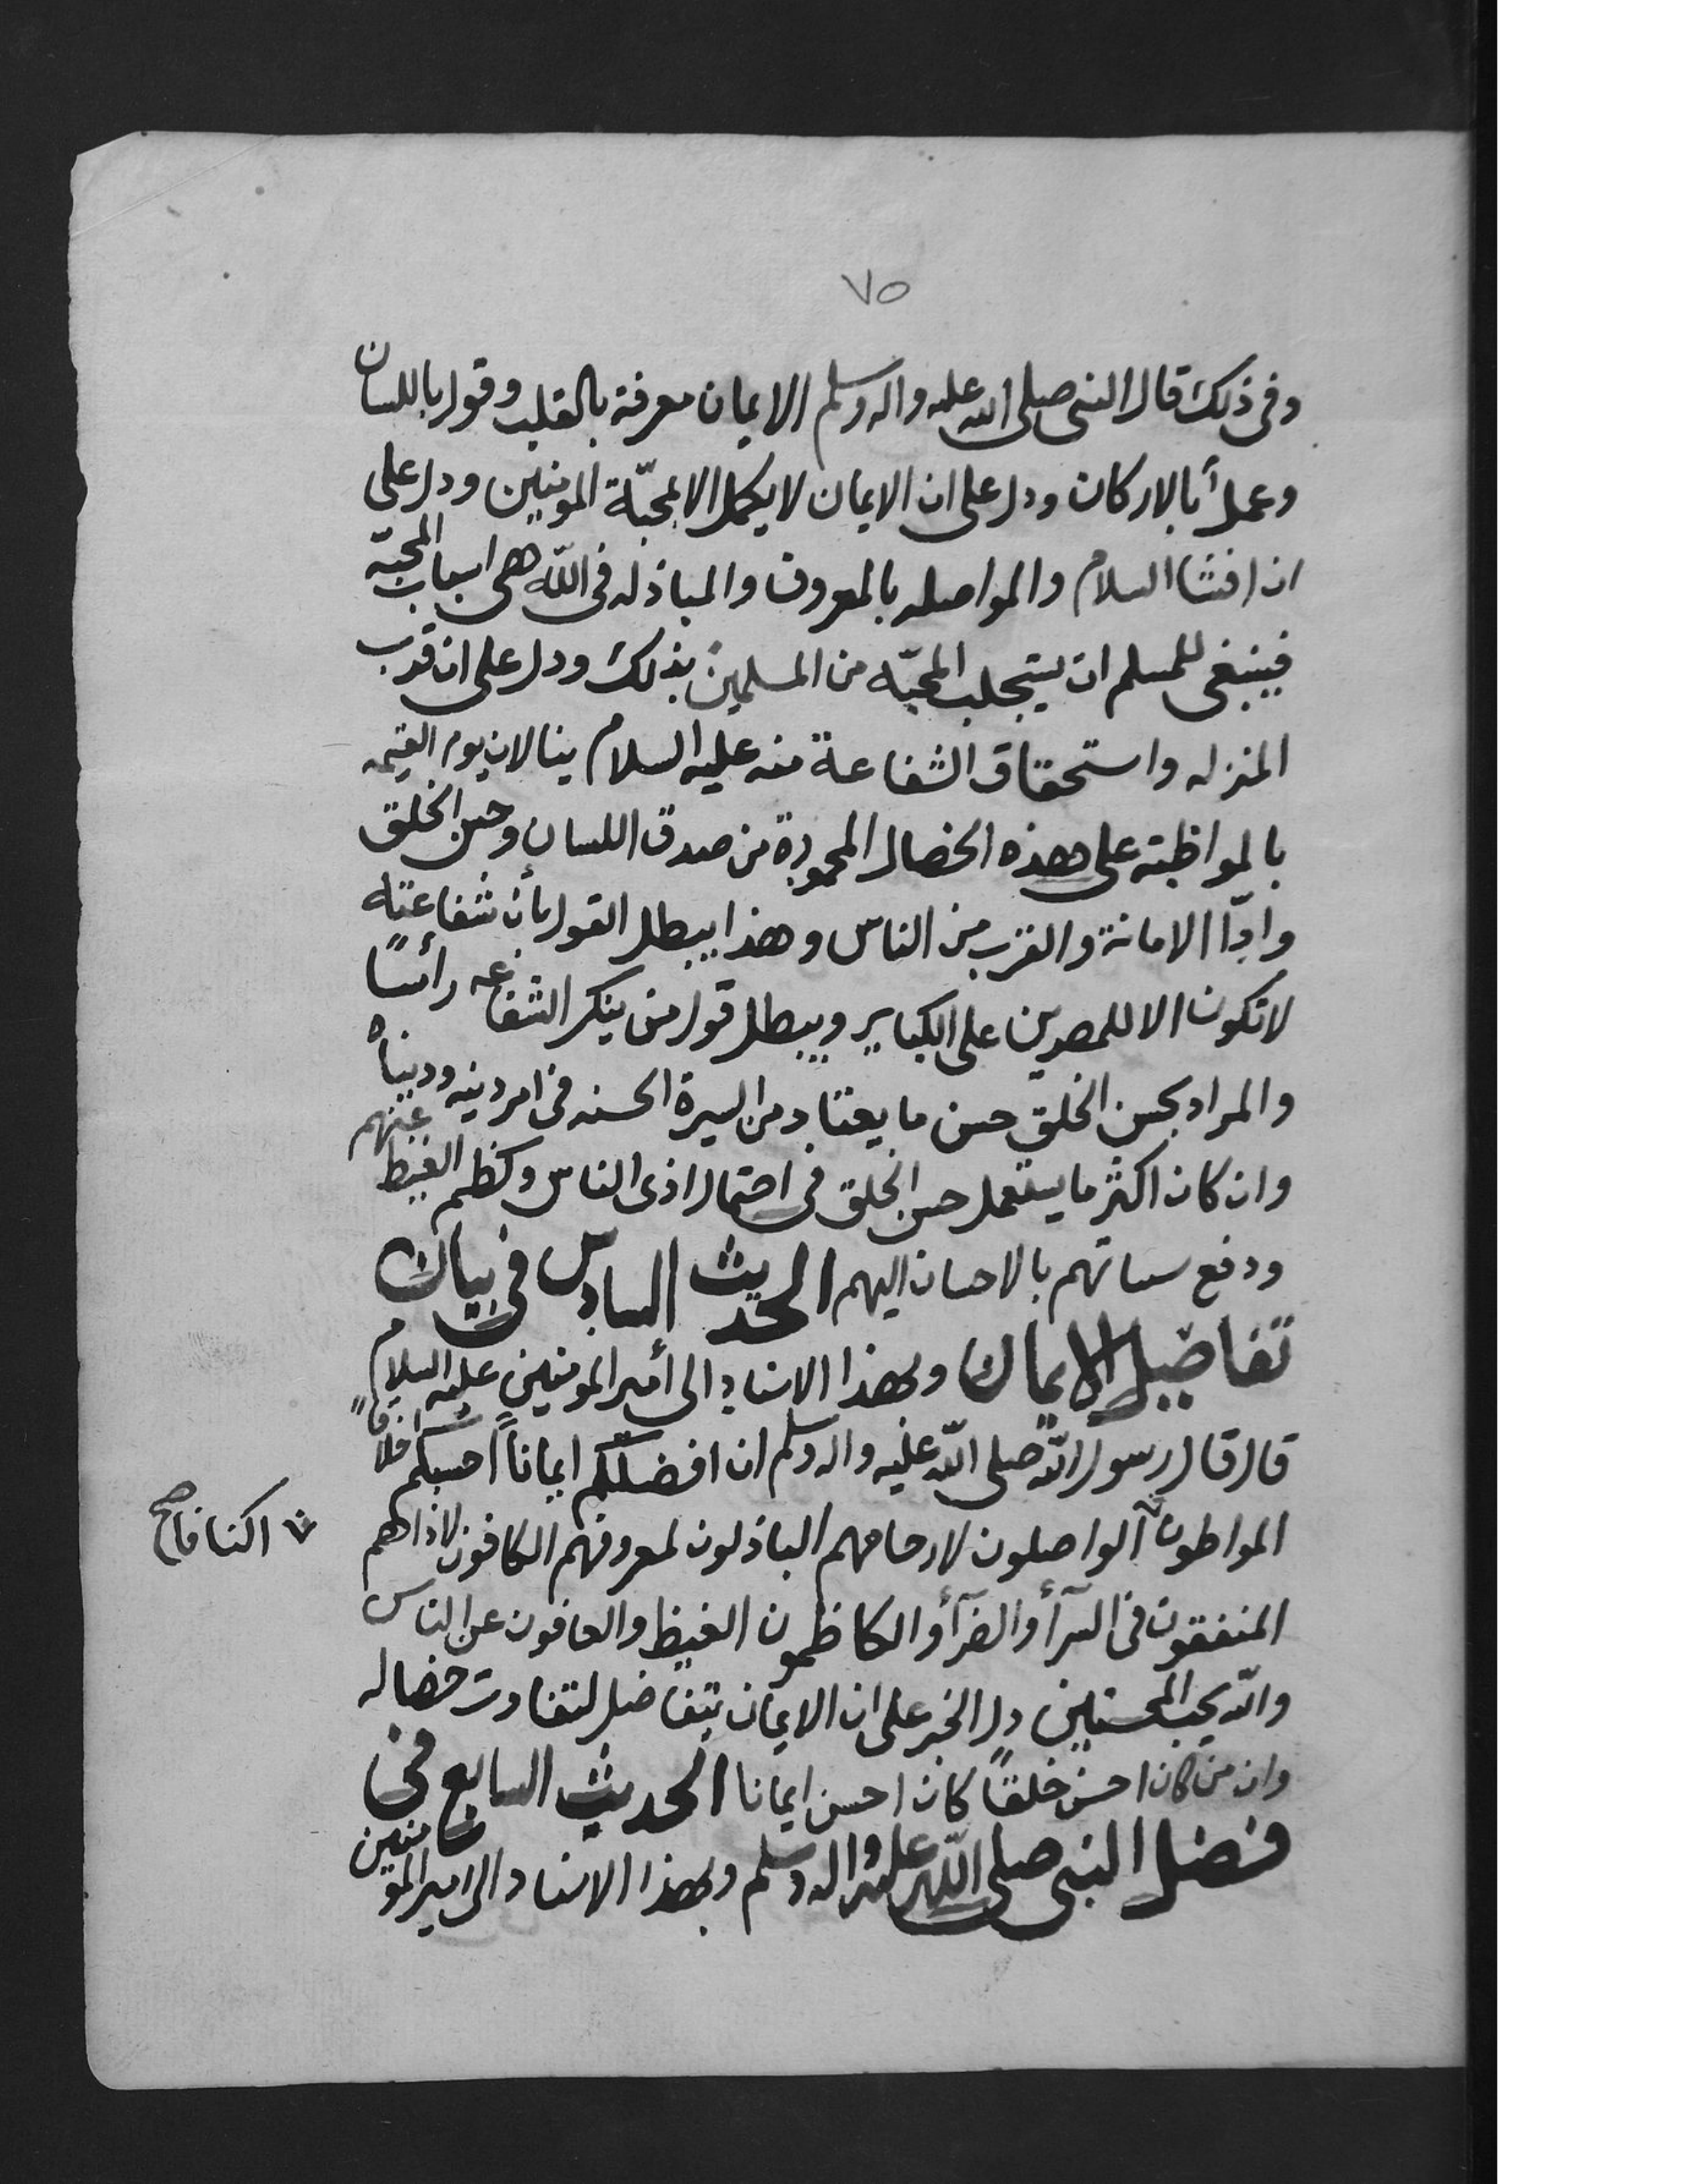 ٧٥
وفى ذلك قال النبى صلى الله عليه واله وسلم الايمان معرفة بالقلب وقول باللسان
وعملاً بالاركان ودل على ان الايمان لا يكمل الا بمحبّة المومنين ودل على
ان افشا السلام والمواصله بالمعروف والمباذله فى اللّه هى اسباب المحبّة
فينبغى للمسلم ان يستجلب المحبّه من المسلمين بذلك ودل على ان قرب
المنزله واستحقاق الشفاعة منه عليه السلام ينالان يوم القيمه
بالمواظبته على هذه الخصال المحمودة من صدق اللسان وحسن الخلق
وادّا الامانة والقرب من الناس وهذا يبطل القول بأن شفاعته
لا تكون الا للمصرين على الكباير ويبطل قول من ينكر الشفاعه رأسًا
والمراد بحسن الخلق حسن ما يعتاد من السيرة الحسنه فى امر دينه ودنياه
وان كان اكثر ما يستعمل حسن الخلق فى احتمال اذى الناس وكظم الغيظ عنهم
ودفع سياتهم بالاحسان اليهم الحديث السادس فى بيان
تفاضل الايمان وبهذا الاسناد الى أمير المومنين عليه السلام
قال قال رسول اللّه صلى اللّه عليه واله وسلم ان افضلكم ايماناً احسنكم اخلاقاً
المواطون الواصلون لارحامهم الباذلون لمعروفهم الكافون لاذاهم
اكنافا صح
المنفقون فى السرآ والضرآ والكاظمون الغيظ والعافون عن الناس
واللّه يحب المحسنين دل الخبر على ان الايمان يتفاضل لتفاوت خصاله
وان من كان احسن خلقاً كان احسن ايمانا الحديث السابع فى
فضل النبى صلى اللّه عليه واله وسلم وبهذا الاسناد الى امير المومنين